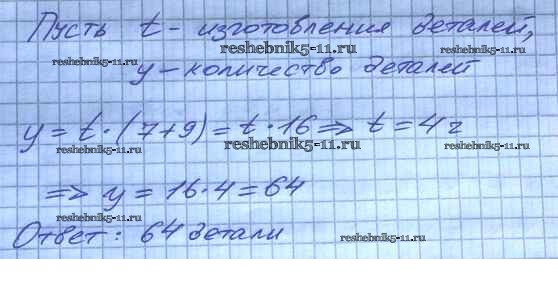 Пусть t - изготовления деталей,
reshebnik5-11.ru reshebnik5-11.ru reshebnik5-11.ru
y - количество деталей
y = t · (7+9) = t · 16 => t = 4 г
reshebnik5-11.ru reshebnik5-11.ru reshebnik5-11.ru
=> y = 16 · 4 = 64
reshebnik5-11.ru
Ответ: 64 детали
reshebnik5-11.ru reshebnik5-11.ru